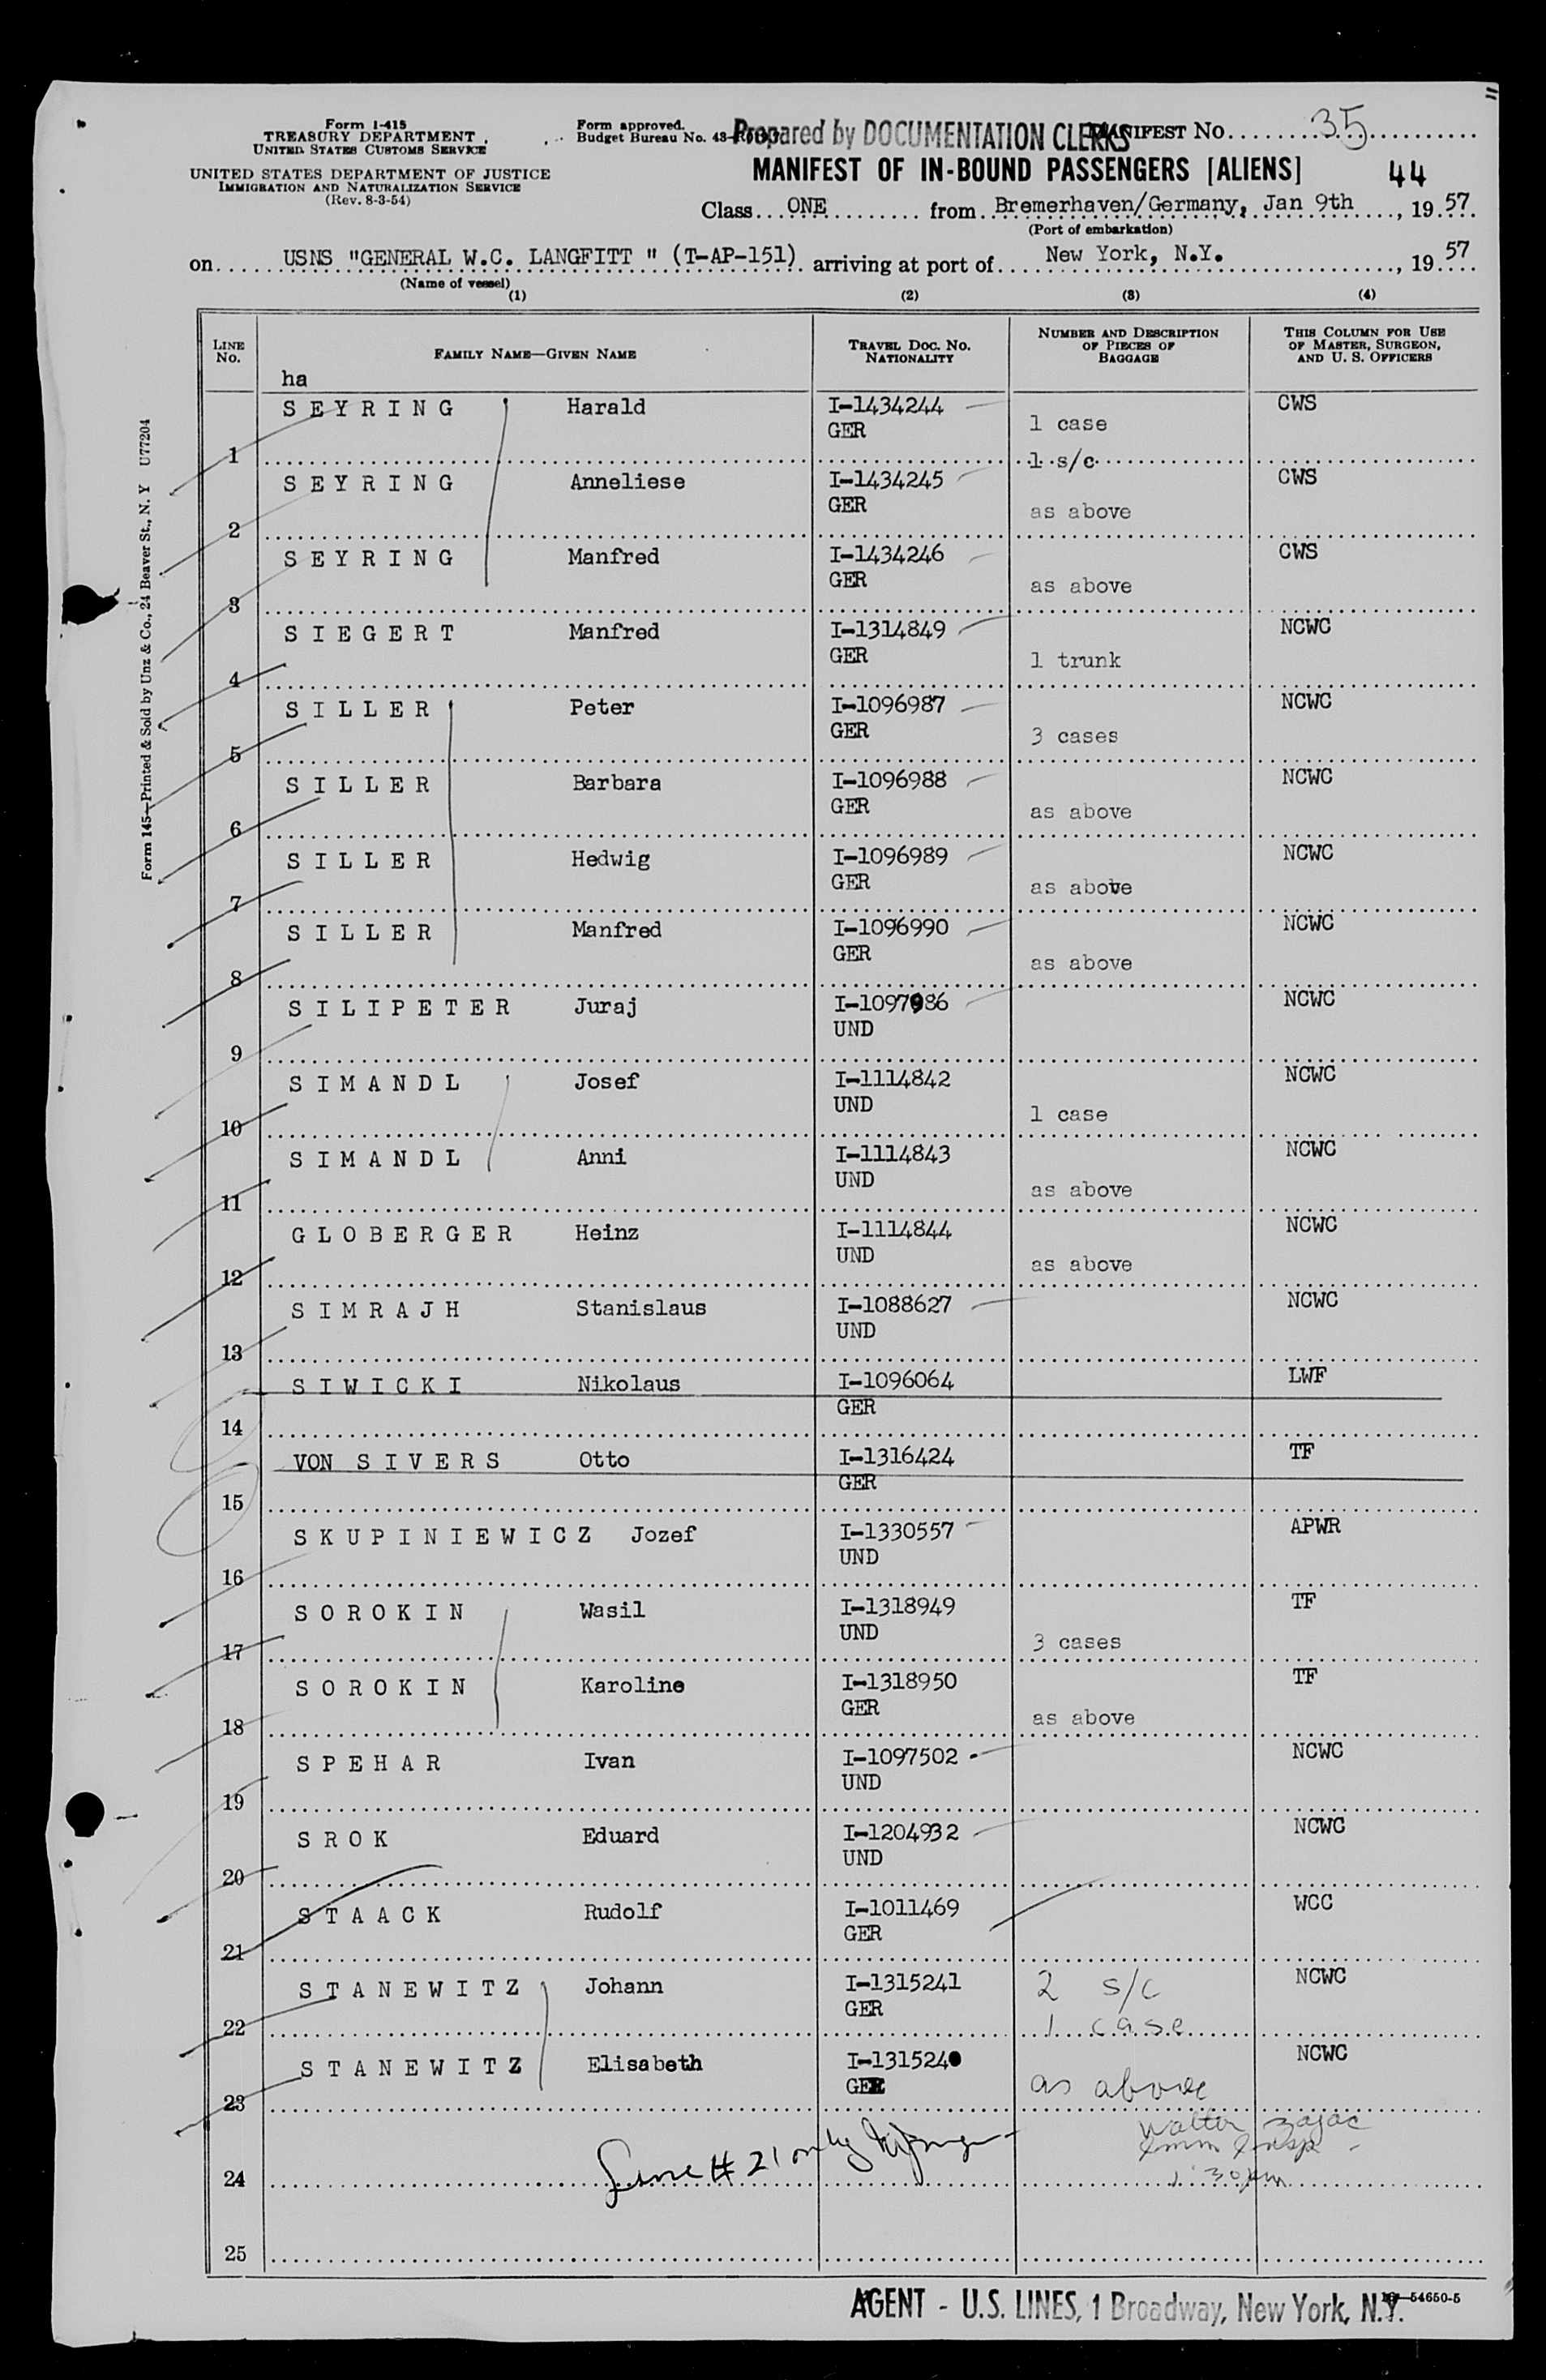 Form I-415
TREASURY DEPARTMENT
UNITED STATES CUSTOMS SERVICE
UNITED STATES DEPARTMENT OF JUSTICE
IMMIGRATION AND NATURALIZATION SERVICE
(Rev. 8-3-54)
Form approved.
Budget Bureau No. 43-
Prepared by DOCUMENTATION CLERKS
MANIFEST NO. 35
MANIFEST OF IN-BOUND PASSENGERS [ALIENS] 44
Class ONE from Bremerhaven/Germany, Jan 9th, 1957
(Port of embarkation)
on USNS "GENERAL W.C. LANGFITT " (T-AP-151) arriving at port of New York, N.Y., 1957
(Name of vessel)
(1) (2) (3) (4)
LINE No. FAMILY NAME—GIVEN NAME TRAVEL DOC. NO. NATIONALITY NUMBER AND DESCRIPTION OF PIECES OF BAGGAGE THIS COLUMN FOR USE OF MASTER, SURGEON, AND U. S. OFFICERS
ha
1 SEYRING Harald I-1434244 GER 1 case 1 s/c CWS
2 SEYRING Anneliese I-1434245 GER as above CWS
3 SEYRING Manfred I-1434246 GER as above CWS
4 SIEGERT Manfred I-1314849 GER 1 trunk NCWC
5 SILLER Peter I-1096987 GER 3 cases NCWC
6 SILLER Barbara I-1096988 GER as above NCWC
7 SILLER Hedwig I-1096989 GER as above NCWC
8 SILLER Manfred I-1096990 GER as above NCWC
9 SILIPETER Juraj I-1097986 UND NCWC
10 SIMANDL Josef I-1114842 UND 1 case NCWC
11 SIMANDL Anni I-1114843 UND as above NCWC
12 GLOBERGER Heinz I-1114844 UND as above NCWC
13 SIMRAJH Stanislaus I-1088627 UND NCWC
14 SIWICKI Nikolaus I-1096064 GER LWF
15 VON SIVERS Otto I-1316424 GER TF
16 SKUPINIEWICZ Jozef I-1330557 UND APWR
17 SOROKIN Wasil I-1318949 UND 3 cases TF
18 SOROKIN Karoline I-1318950 GER as above TF
19 SPEHAR Ivan I-1097502 UND NCWC
20 SROK Eduard I-1204932 UND NCWC
21 STAACK Rudolf I-1011469 GER WCC
22 STANEWITZ Johann I-1315241 GER 2 s/c 1 case NCWC
23 STANEWITZ Elisabeth I-1315240 GER as above NCWC
Walter Zajac
Imm Insp
1:30pm
Line # 21 only
24
25
AGENT - U.S. LINES, 1 Broadway, New York, N.Y.
16—54650-5
Form 145—Printed & Sold by Unz & Co., 24 Beaver St., N. Y U77204